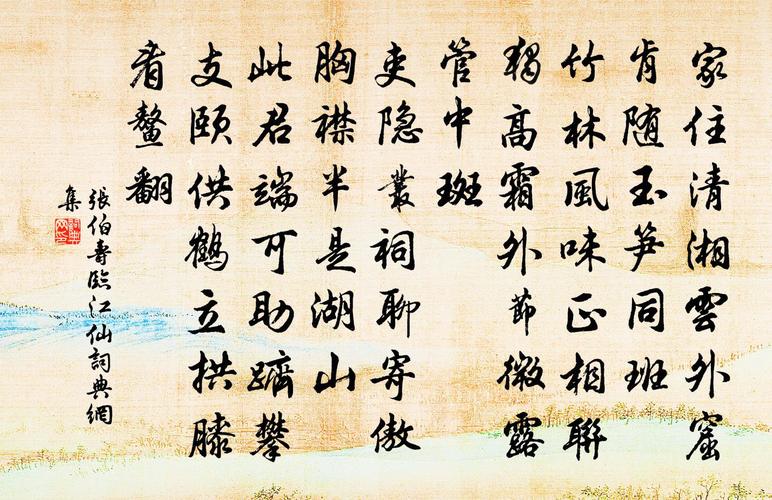 家住清湘雲外窟
肯随玉笋同班
竹林風味正相聯
獨高霜外節微露
管中斑
吏隐叢祠聊寄傲
胸襟半是湖山
此君端可助躋攀
支頤供鶴立拱膝
看鳌翻
張伯壽臨江仙詞典網
集